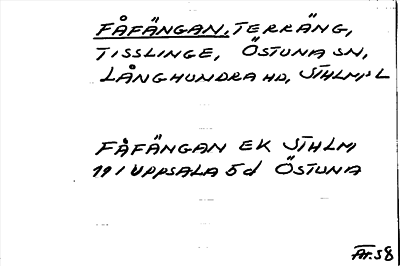 FÅFÄNGAN, TERRÄNG,
TISSLINGE, ÖSTUNA SN,
LÅNGHUNDRA HD, STHLMS L
FÅFÄNGAN EK STHLM,
111 UPPSALA 5d ÖSTUNA
Fr. 58